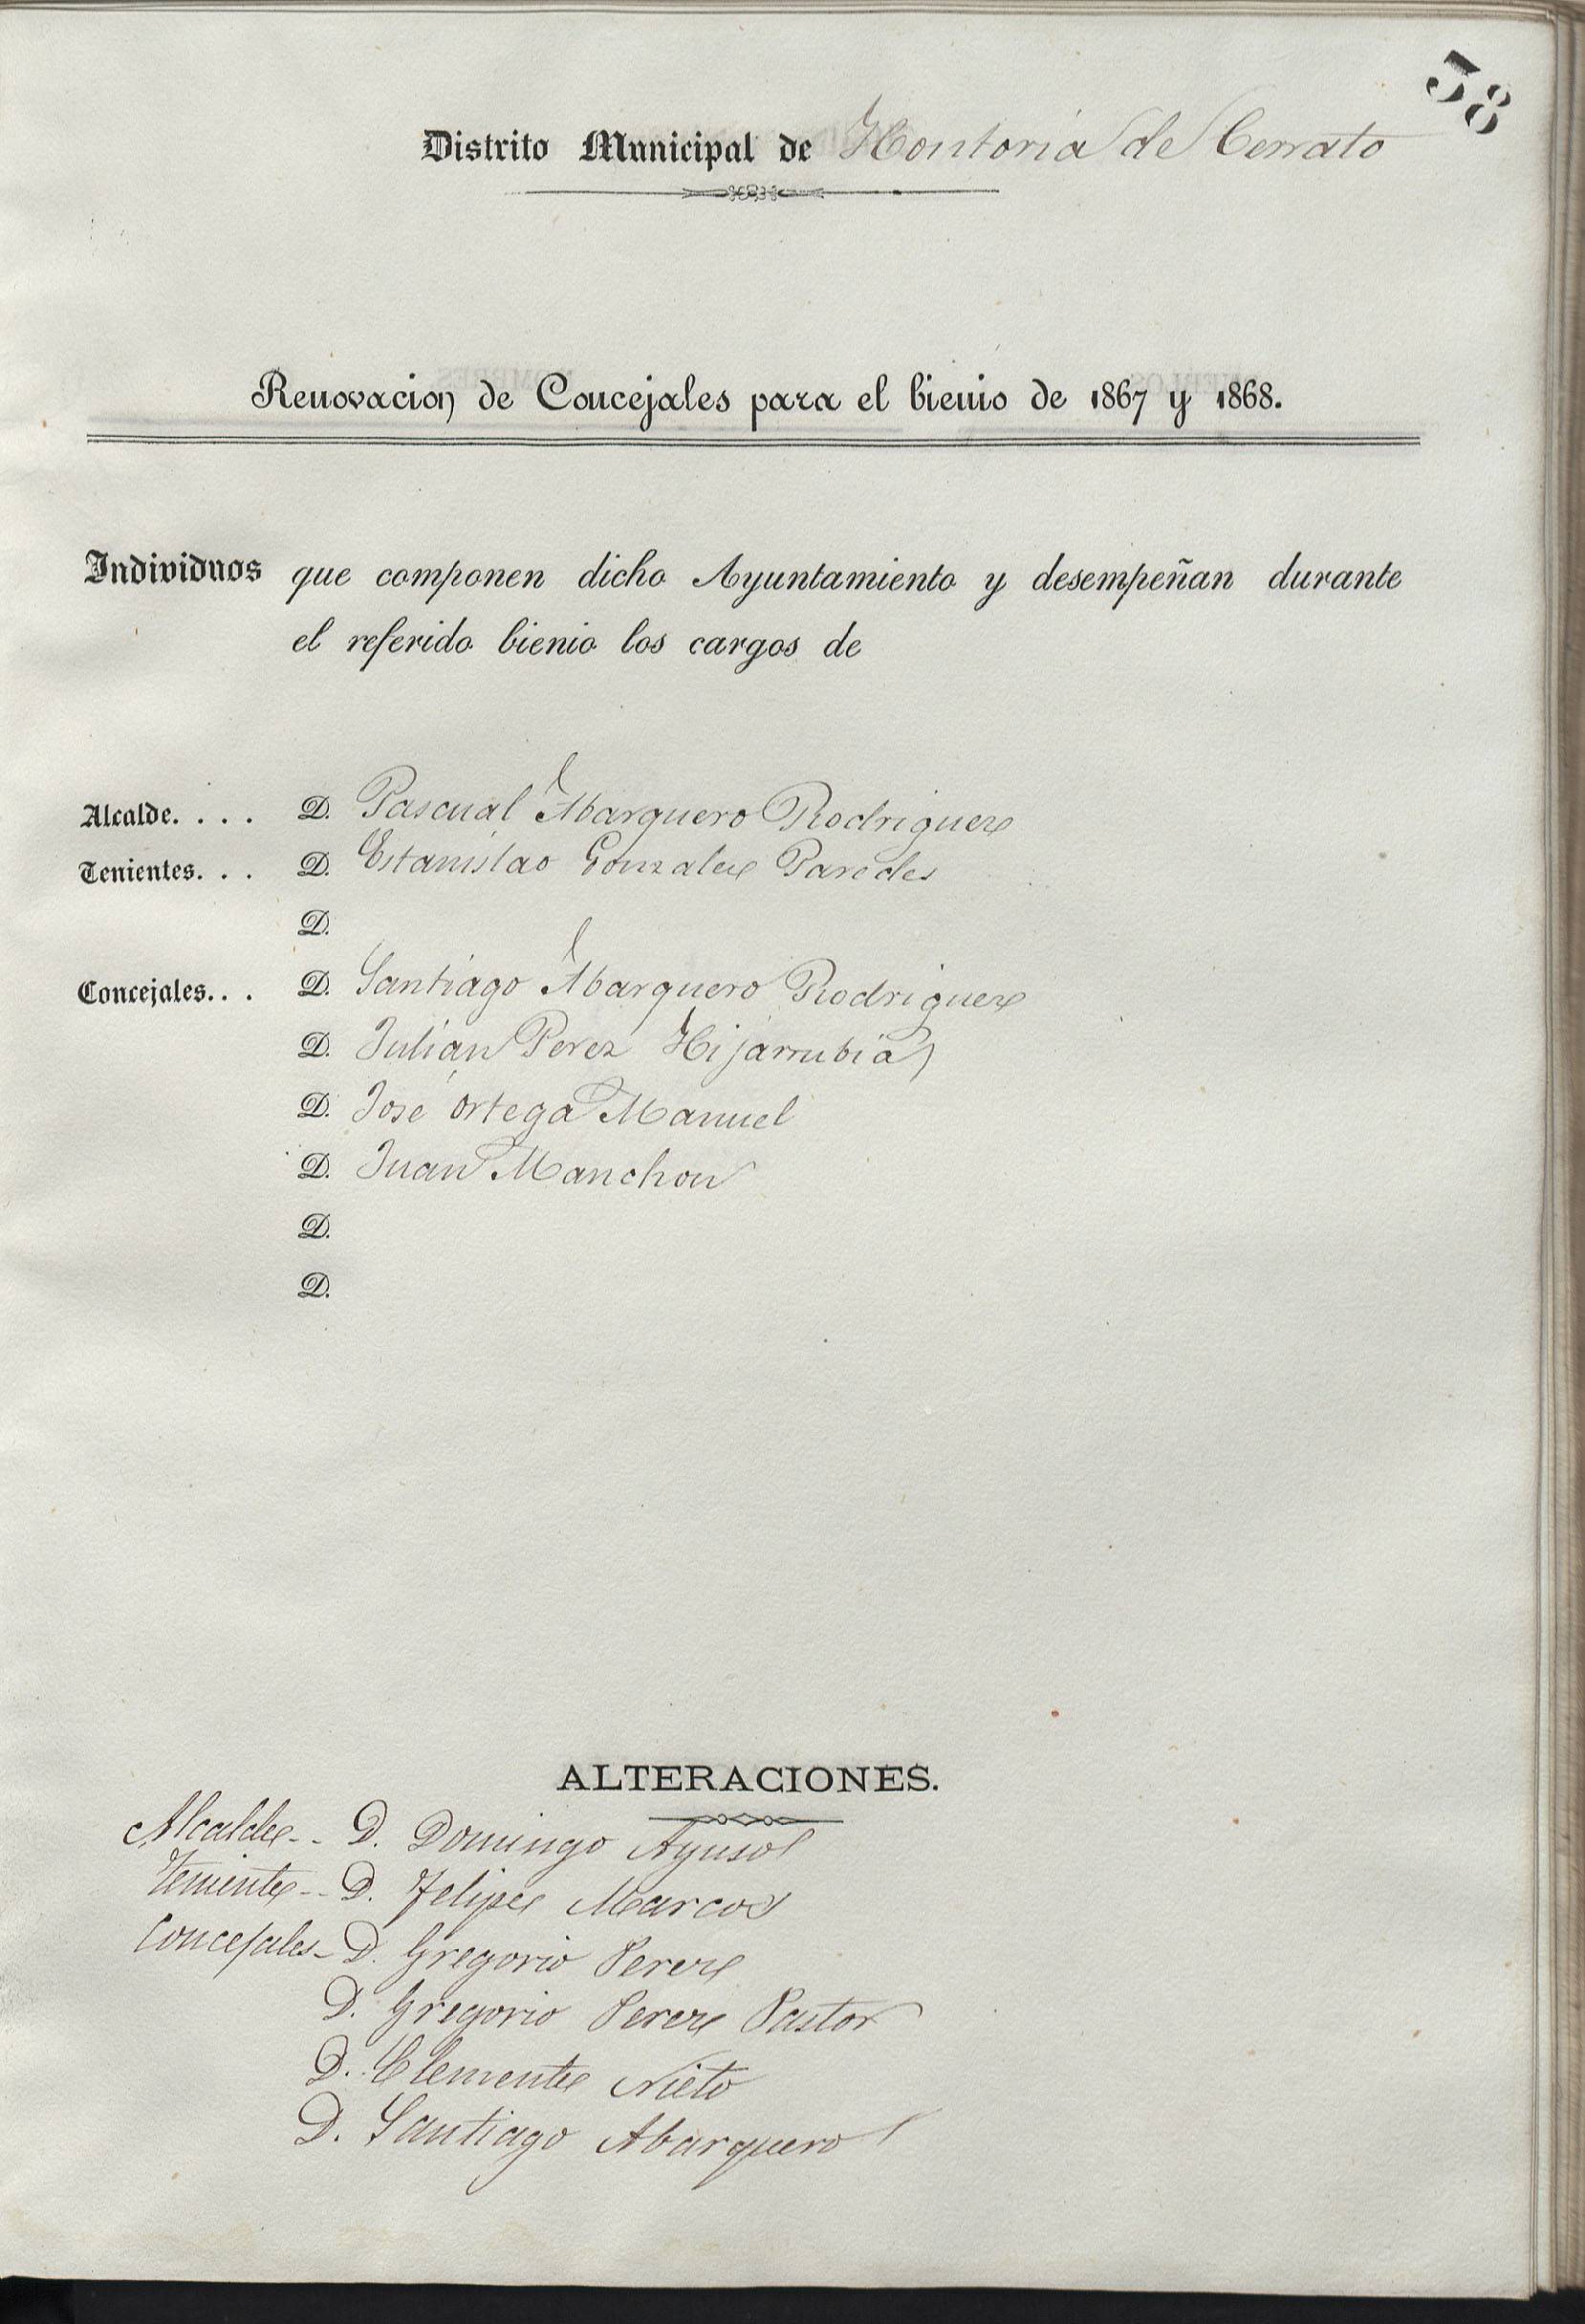 58
Distrito Municipal de Hontoria de Cerrato
Renovacion de Concejales para el bienio de 1867 y 1868.
Individuos que componen dicho Ayuntamiento y desempeñan durante
el referido bienio los cargos de
Alcalde. . . . D. Pascual Abarquero Rodriguez
Tenientes. . . D. Estanislao Gonzalez Paredes
D.
Concejales. . . D. Santiago Abarquero Rodriguez
D. Julian Perez Hijarrubia
D. José Ortega Manuel
D. Juan Manchon
D.
D.
ALTERACIONES.
Alcalde-- D. Domingo Ayuso
Teniente-- D. Felipe Marcos
Concejales- D. Gregorio Perez
D. Gregorio Perez Pastor
D. Clemente Nieto
D. Santiago Abarquero